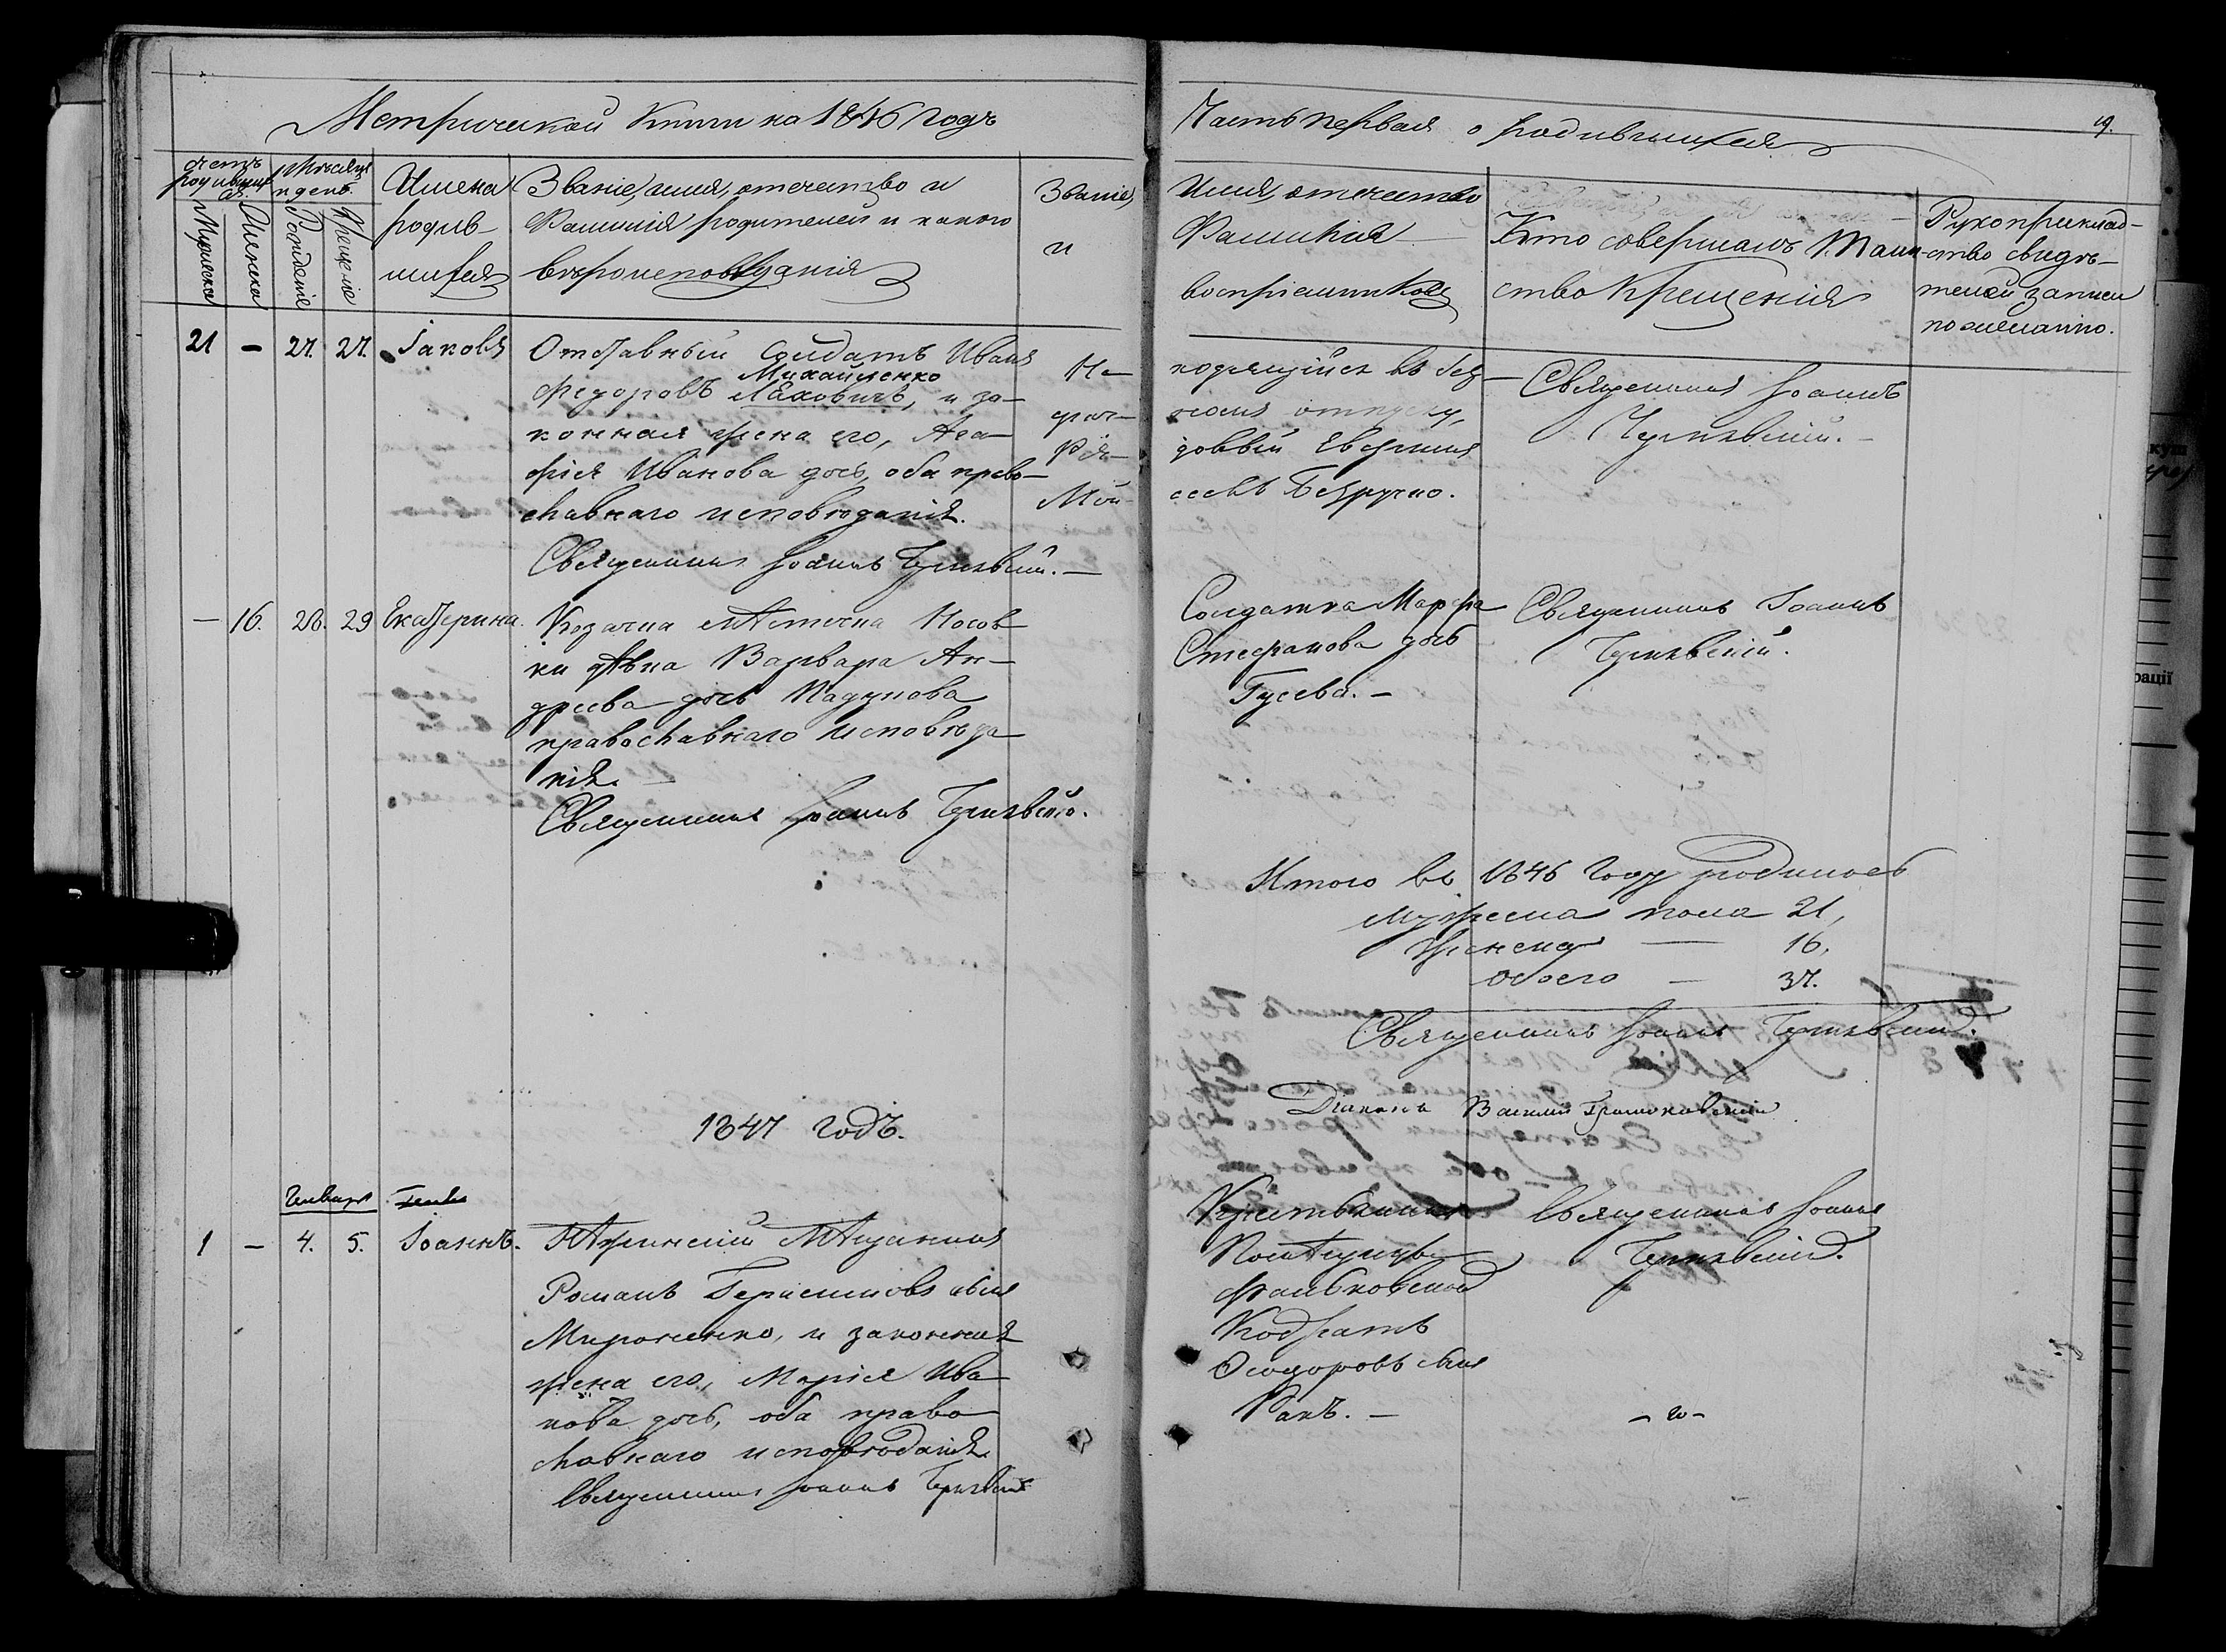 Метрической Книги на 1846 годъ
Часть первая о родившихся
19.
Счетъ родившихся
Мѣсяцъ и день
Мужеска
Женска
Рожденіе
Крещеніе
Имена
родив-
шихся
Званіе, имя, отечество и
Фамилія родителей и какого
вѣроисповѣданія
Званіе,
и
Имя, отечество
Фамилія
воспріемниковъ
Кто совершалъ Таин-
ство Крещенія
Рукоприклад-
ство свидѣ-
телей записи
по желанію.
21 — 27. 27. Іаковъ
Отставный Солдатъ Иванъ
Михайленко
Федоровъ Ляховичъ, и за-
конная жена его, Ага-
фія Иванова дочь, оба право-
славнаго исповѣданія.
Священникъ Іоаннъ
На-
ходящійся въ без-
срочн отпуску,
рядовый Евфимій
Безручко.
Священникъ Іоаннъ
— 16. 28. 29 Екатерина.
Козачка мѣстечка Носов
ки дѣвка Варвара Ан-
дреева дочь Падункова
православнаго исповѣда
нія.
Священникъ Іоаннъ
Солдатка Марфа
Стефанова дочь
Гусева. —
Священникъ Іоаннъ
Итого въ 1846 году родилось
мужеска пола 21,
женска — 16.
обоего — 37.
Священникъ Іоаннъ
Діаконъ Василий
1847 годъ.
Генваря
1 — 4. 5. Іоаннъ.
Нѣжинскій Мѣщанинъ
Романъ Герасимовъ сынъ
Мироненко, и законная
жена его, Марія Ива
нова дочь, оба право
славнаго исповѣданія.
Священникъ Іоаннъ
Крестьянинъ
Помѣщицы
Фальковской
Кодратъ
Ѳеодоровъ сынъ
Ракъ. —
Священникъ Іоаннъ